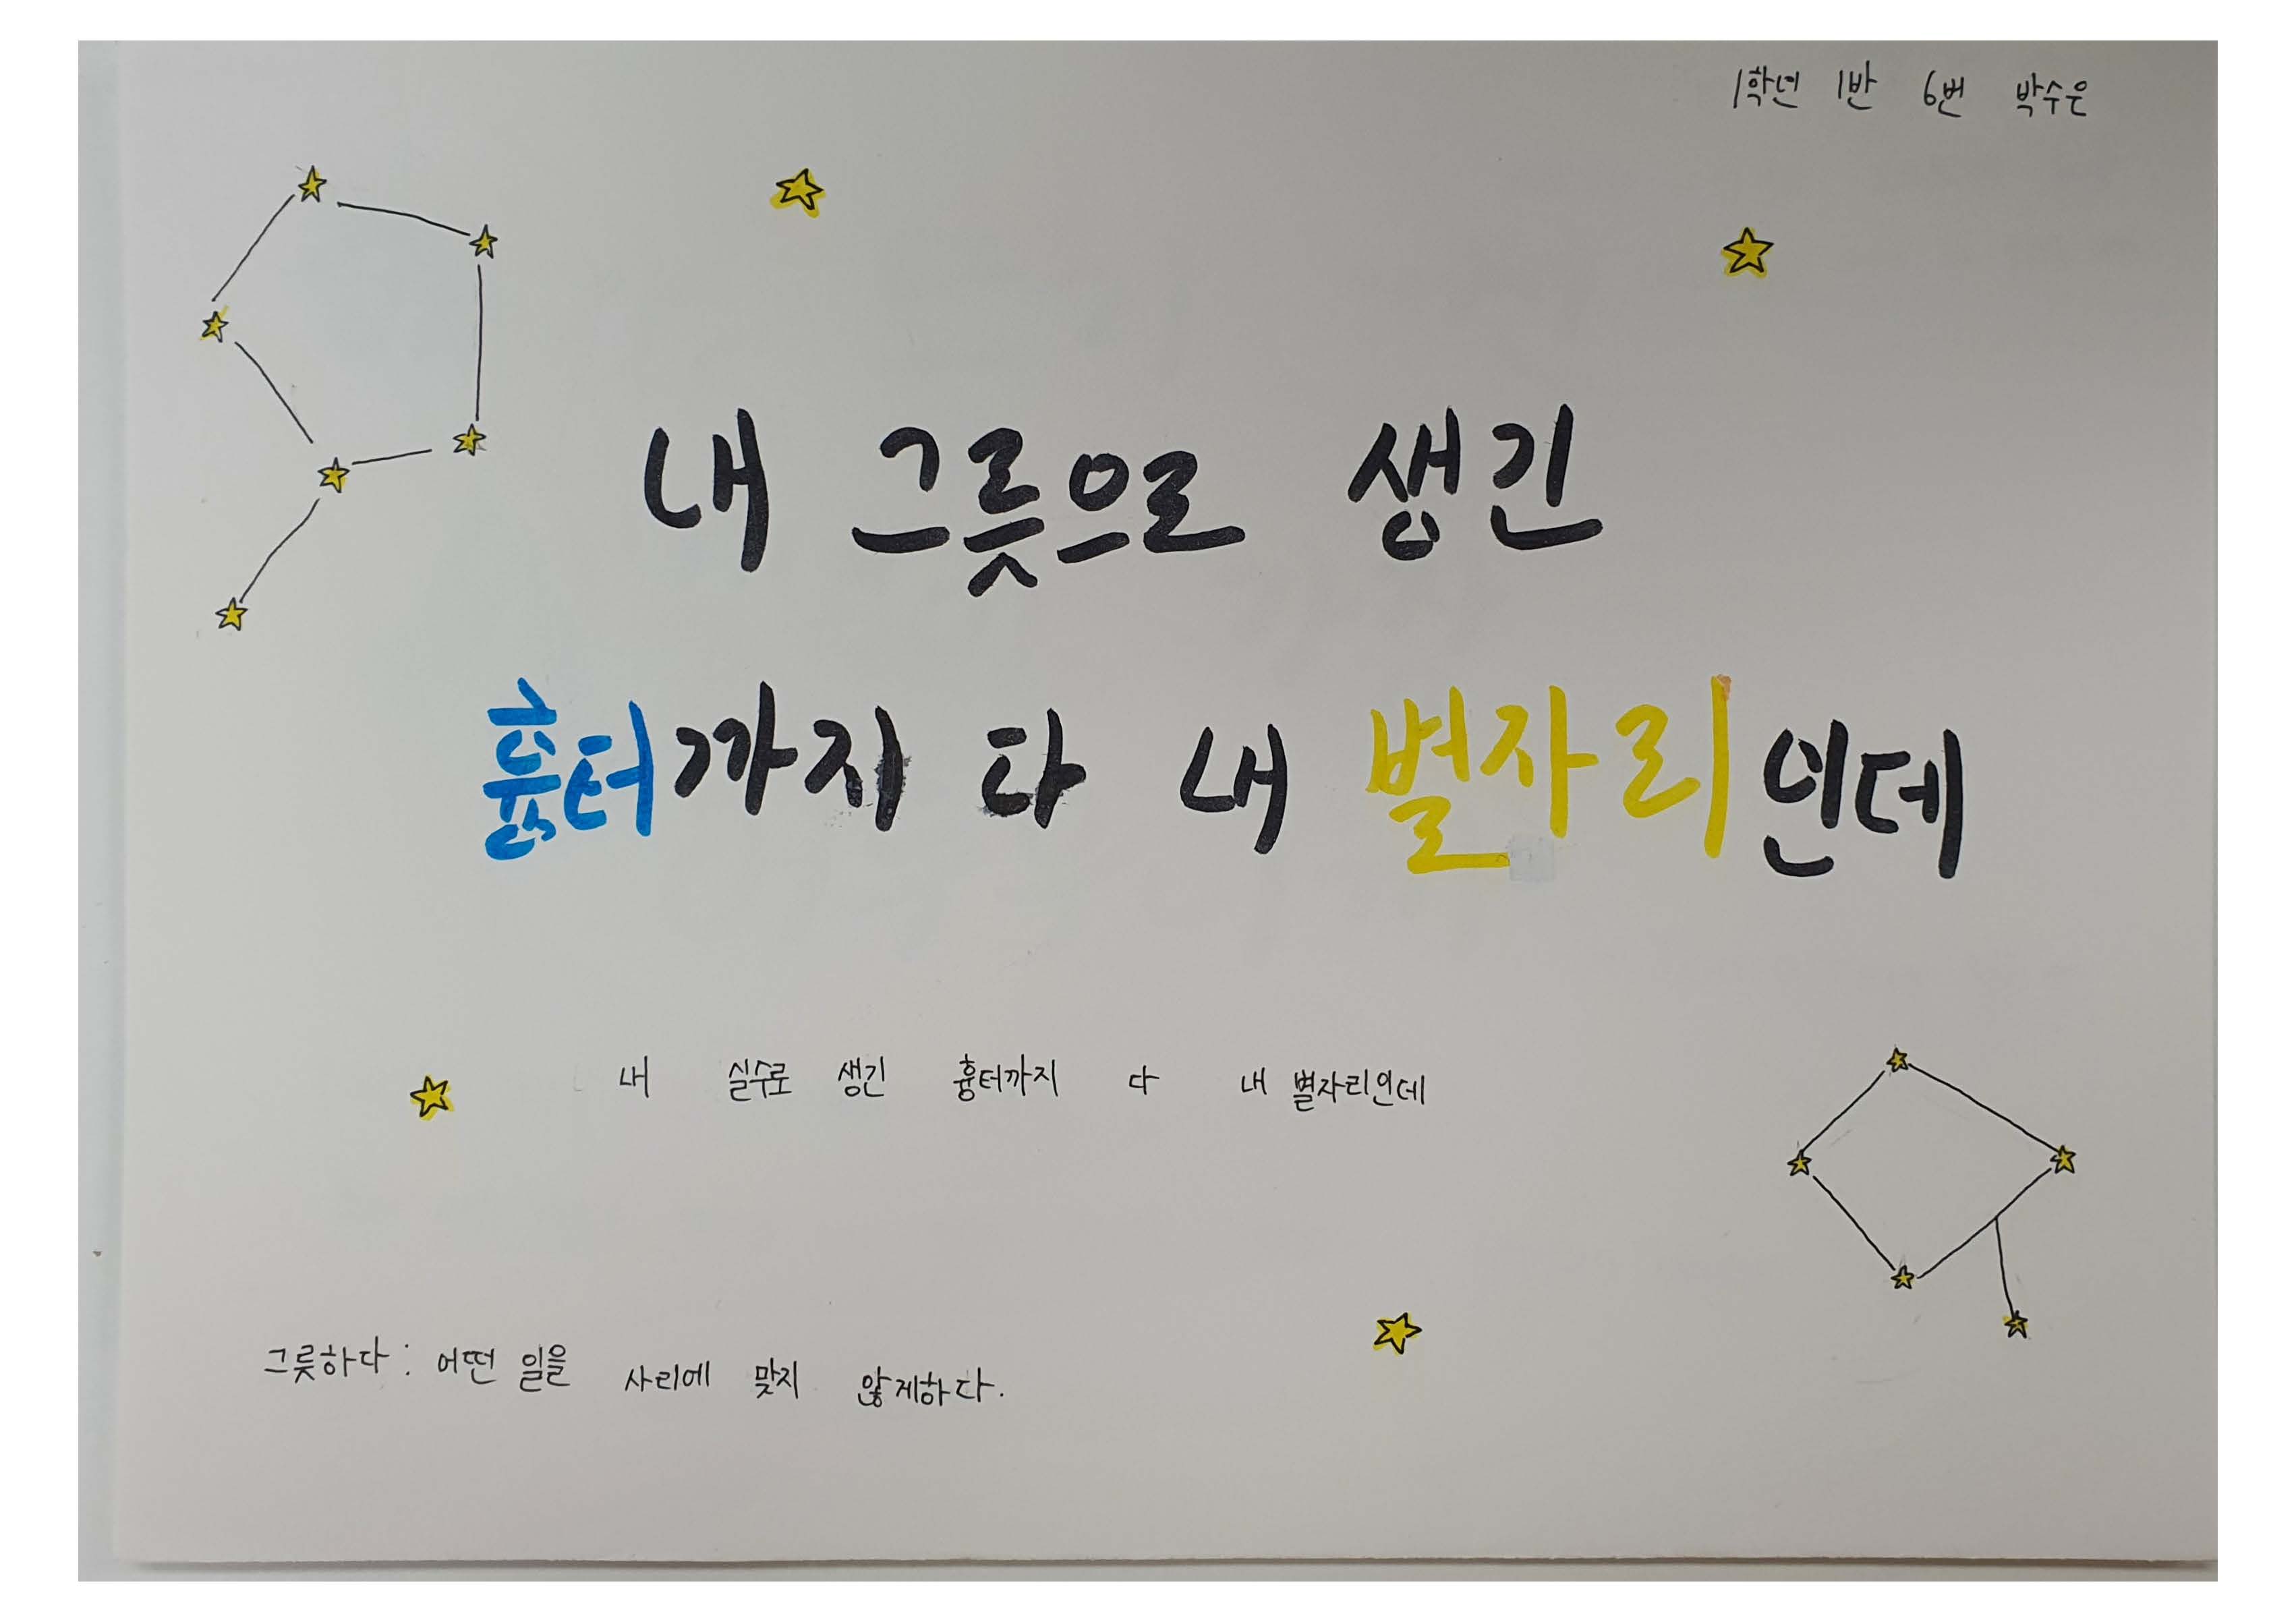 1학년 1반 6번 박수은
내 그릇으로 생긴
흉터까지 다 내 별자리인데
내 실수로 생긴 흉터까지 다 내 별자리인데
그릇하다 : 어떤 일을 사리에 맞지 않게하다.